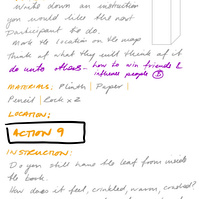 Write down an instruction
you would like the next
participant to do.
Mark the location on the map
Think of what they will think of it
do unto others - how to win friends &
influence people
MATERIALS: Plinth | Paper |
Pencil | Rock x 2
LOCATION:
ACTION 9
INSTRUCTION:
Do you still have the leaf from inside
the book.
How does it feel, crinkled, warm, crushed?